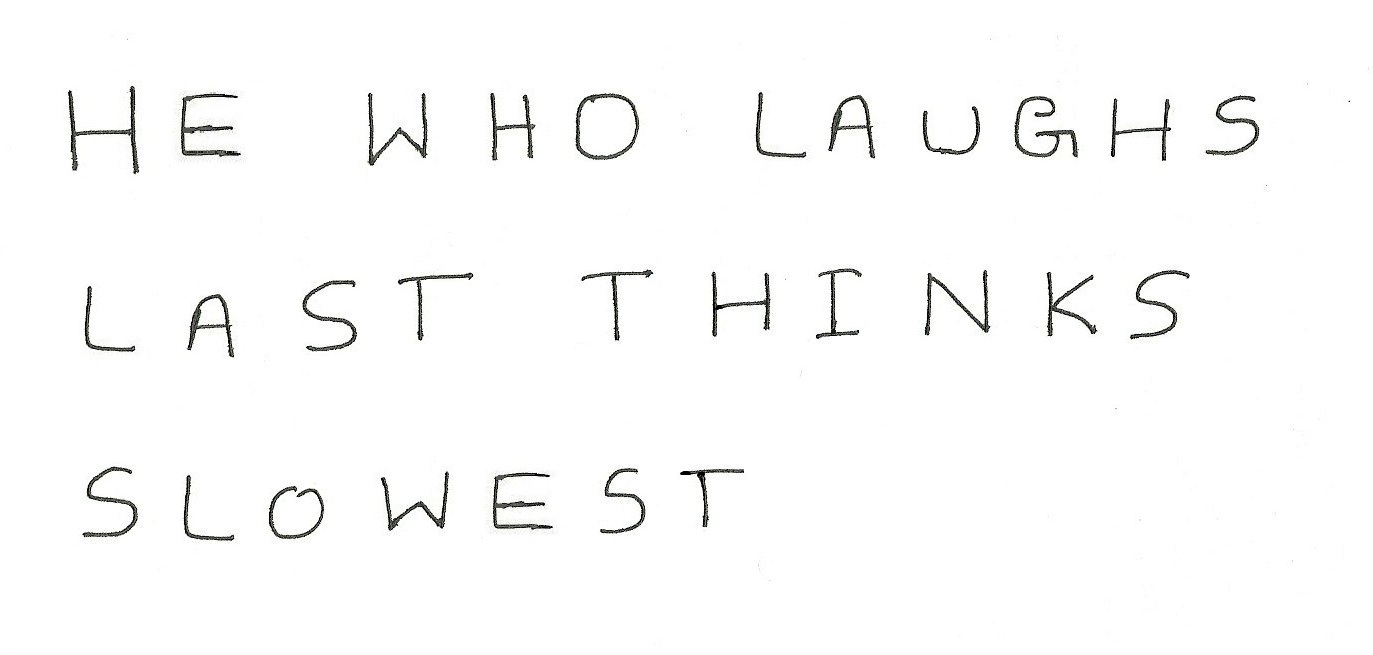 HE WHO LAUGHS
LAST THINKS
SLOWEST